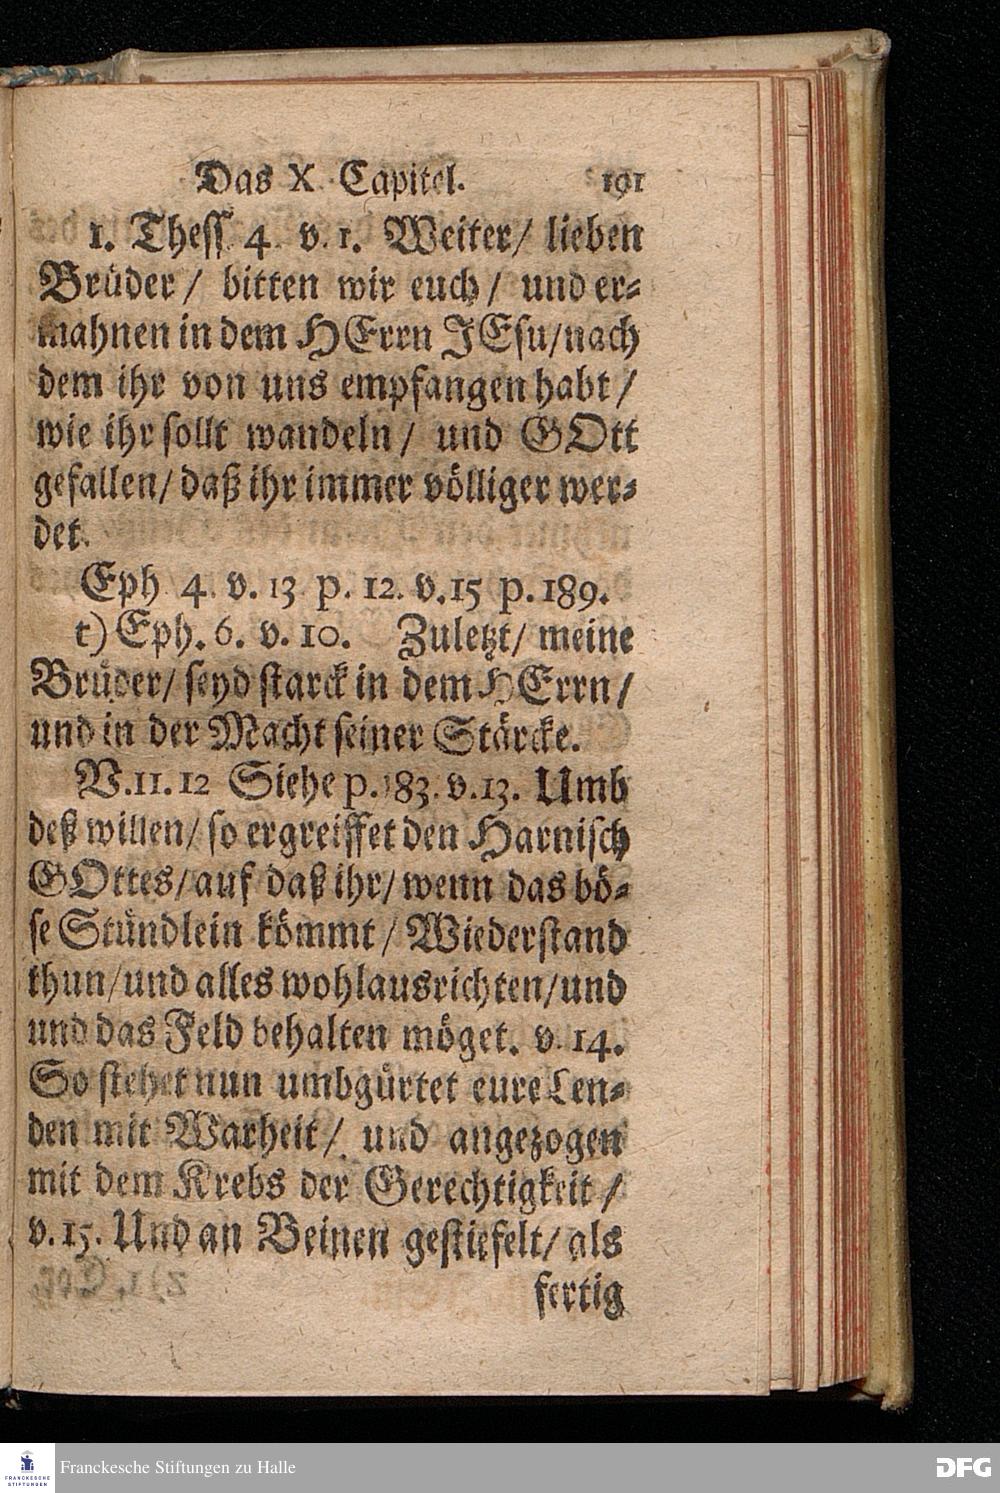 Das X. Capitel. 191
1. Thess. 4. v. 1. Weiter/ lieben
Brüder/ bitten wir euch/ und er-
mahnen in dem HErrn JEsu/nach
dem ihr von uns empfangen habt/
wie ihr sollt wandeln/ und GOtt
gefallen/ daß ihr immer völliger wer-
det.
Eph. 4. v. 13 p. 12. v. 15 p. 189.
t) Eph. 6. v. 10. Zuletzt/ meine
Brüder/ seyd starck in dem HErrn/
und in der Macht seiner Stärcke.
V. 11. 12 Siehe p. 183. v. 13. Umb
deß willen/ so ergreiffet den Harnisch
GOttes/auf daß ihr/wenn das bö-
se Stündlein kömmt/ Wiederstand
thun/und alles wohlausrichten/und
und das Feld behalten möget. v. 14.
So stehet nun umbgürtet eure Len-
den mit Warheit/ und angezogen
mit dem Krebs der Gerechtigkeit/
v. 15. Und an Beinen gestiefelt/ als
fertig
FRANCKESCHE
STIFTUNGEN
Franckesche Stiftungen zu Halle
DFG